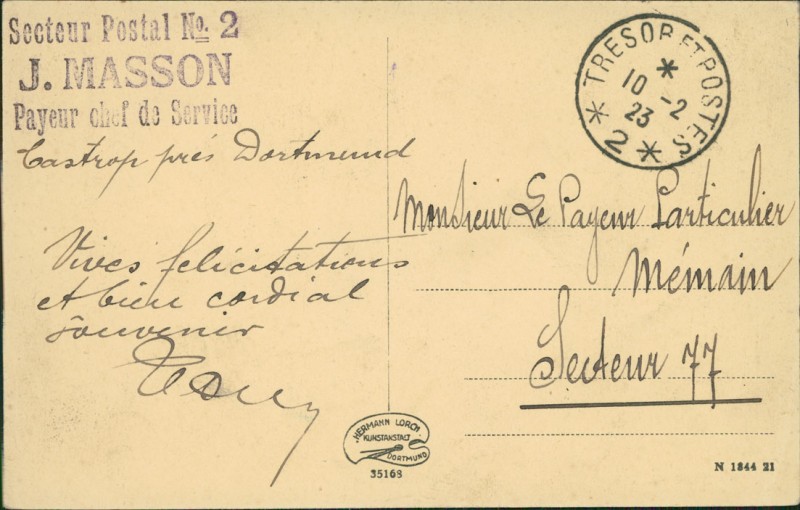 Secteur Postal No. 2
J. MASSON
Payeur chef de Service
Castrop près Dortmund
Vives felicitations
et bien cordial
souvenir
TRESOR ET POSTES
*
10 -2
23
* 2 *
Monsieur Le Payeur Particulier
Mémain
Secteur 77
HERMANN LORCH
KUNSTANSTALT
DORTMUND
35168
N 1844 21